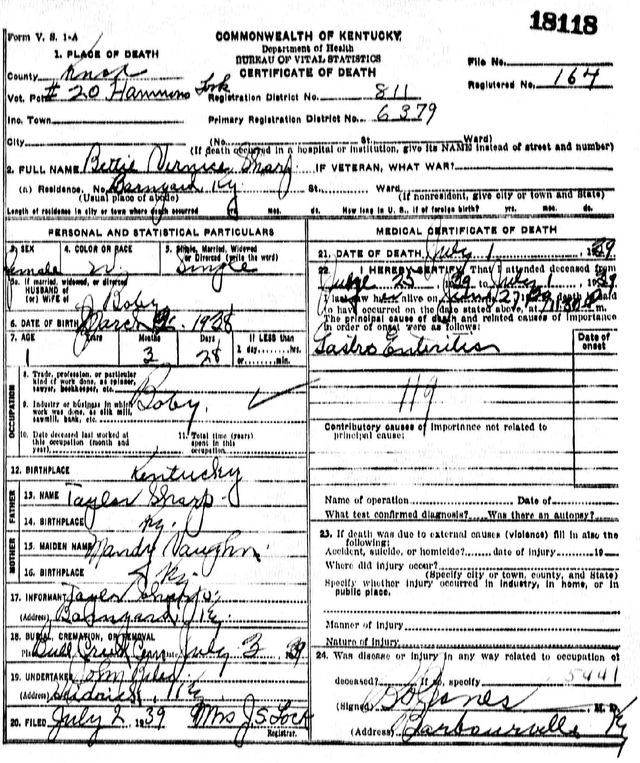 18118
Form V. S. 1-A
COMMONWEALTH OF KENTUCKY
Department of Health
BUREAU OF VITAL STATISTICS
CERTIFICATE OF DEATH
1. PLACE OF DEATH
File No.
County Knox
Registered No. 164
Vot. Pct # 20 Hammons Fork
Registration District No. 811
Inc. Town
Primary Registration District No. 6379
City (No. St. Ward)
(If death occurred in a hospital or institution, give its NAME instead of street and number)
2. FULL NAME Vernice Sharp IF VETERAN, WHAT WAR?
(a) Residence. No. Barnyard Ky St. Ward.
(Usual place of abode) (If nonresident, give city or town and State)
Length of residence in city or town where death occurred yrs. mos. ds. How long in U. S., if of foreign birth? yrs. mos. ds.
PERSONAL AND STATISTICAL PARTICULARS
3. SEX 4. COLOR OR RACE 5. Single, Married, Widowed
or Divorced (write the word)
Female W. Single
5a. If married, widowed, or divorced
HUSBAND OF
(or) WIFE of Boby
6. DATE OF BIRTH March 1938
7. AGE Years Months Days If LESS than
1 day,....hrs.
or....min.
1 3 28
OCCUPATION
8. Trade, profession, or particular
kind of work done, as spinner,
sawyer, bookkeeper, etc.
9. Industry or business in which
work was done, as silk mill,
sawmill, bank, etc.
Boby.
10. Date deceased last worked at
this occupation (month and
year)
11. Total time (years)
spent in this
occupation
12. BIRTHPLACE Kentucky
FATHER
13. NAME Taylor Sharp
14. BIRTHPLACE Ky.
MOTHER
15. MAIDEN NAME Mandy Vaughn
16. BIRTHPLACE Ky.
17. INFORMANT Taylor Sharp
(Address) Barnyard Ky.
18. BURIAL, CREMATION, OR REMOVAL
Bull Creek Cem July 3 39
19. UNDERTAKER John
(Address) Ky
20. FILED July 2 1939 Mrs J S Lock
Registrar.
MEDICAL CERTIFICATE OF DEATH
21. DATE OF DEATH July 1, 1939
22. I HEREBY CERTIFY, That I attended deceased from
25 1939 to July 1 1939
I last saw h alive on 27, 1939 death is said
to have occurred on the date stated above, at m.
The principal cause of death and related causes of importance
in order of onset were as follows:
Date of
onset
Gastro Enteritis
119
Contributory causes of importance not related to
principal cause:
Name of operation Date of
What test confirmed diagnosis? Was there an autopsy?
23. If death was due to external causes (violence) fill in also the
following:
Accident, suicide, or homicide? date of injury 19
Where did injury occur?
(Specify city or town, county, and State)
Specify whether injury occurred in industry, in home, or in
public place.
Manner of injury
Nature of injury
24. Was disease or injury in any way related to occupation of
deceased? If so, specify 5441
(Signed) M. D.
(Address) Barbourville Ky